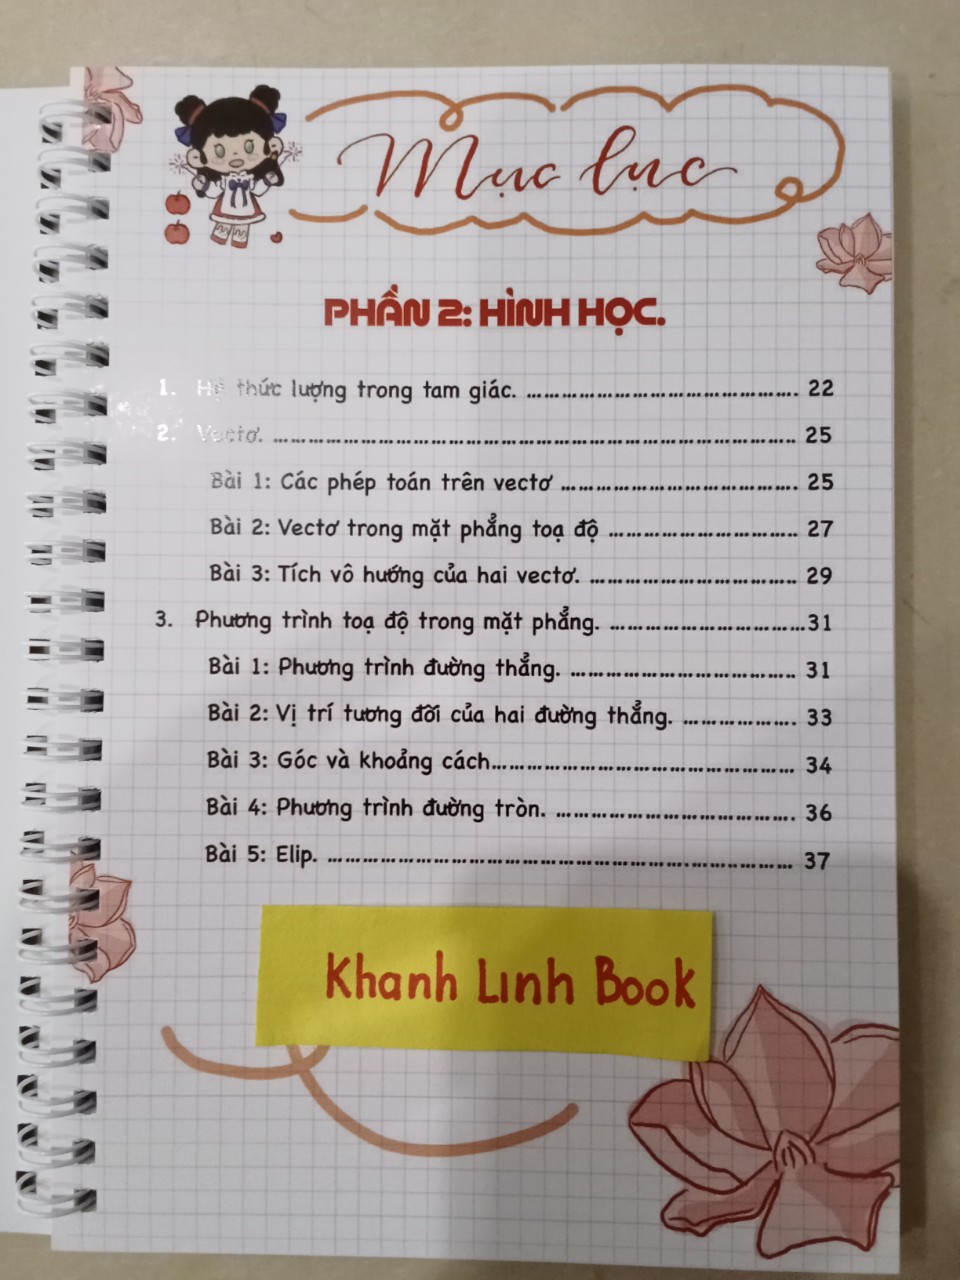 Mục lục
PHẦN 2: HÌNH HỌC.
1. Hệ thức lượng trong tam giác. ........................ 22
2. Vectơ. ........................ 25
Bài 1: Các phép toán trên vectơ ........................ 25
Bài 2: Vectơ trong mặt phẳng toạ độ ........................ 27
Bài 3: Tích vô hướng của hai vectơ. ........................ 29
3. Phương trình toạ độ trong mặt phẳng. ........................31
Bài 1: Phương trình đường thẳng. ........................ 31
Bài 2: Vị trí tương đối của hai đường thẳng. ................ 33
Bài 3: Góc và khoảng cách........................ 34
Bài 4: Phương trình đường tròn. ........................ 36
Bài 5: Elip. ........................ 37
Khanh Linh Book